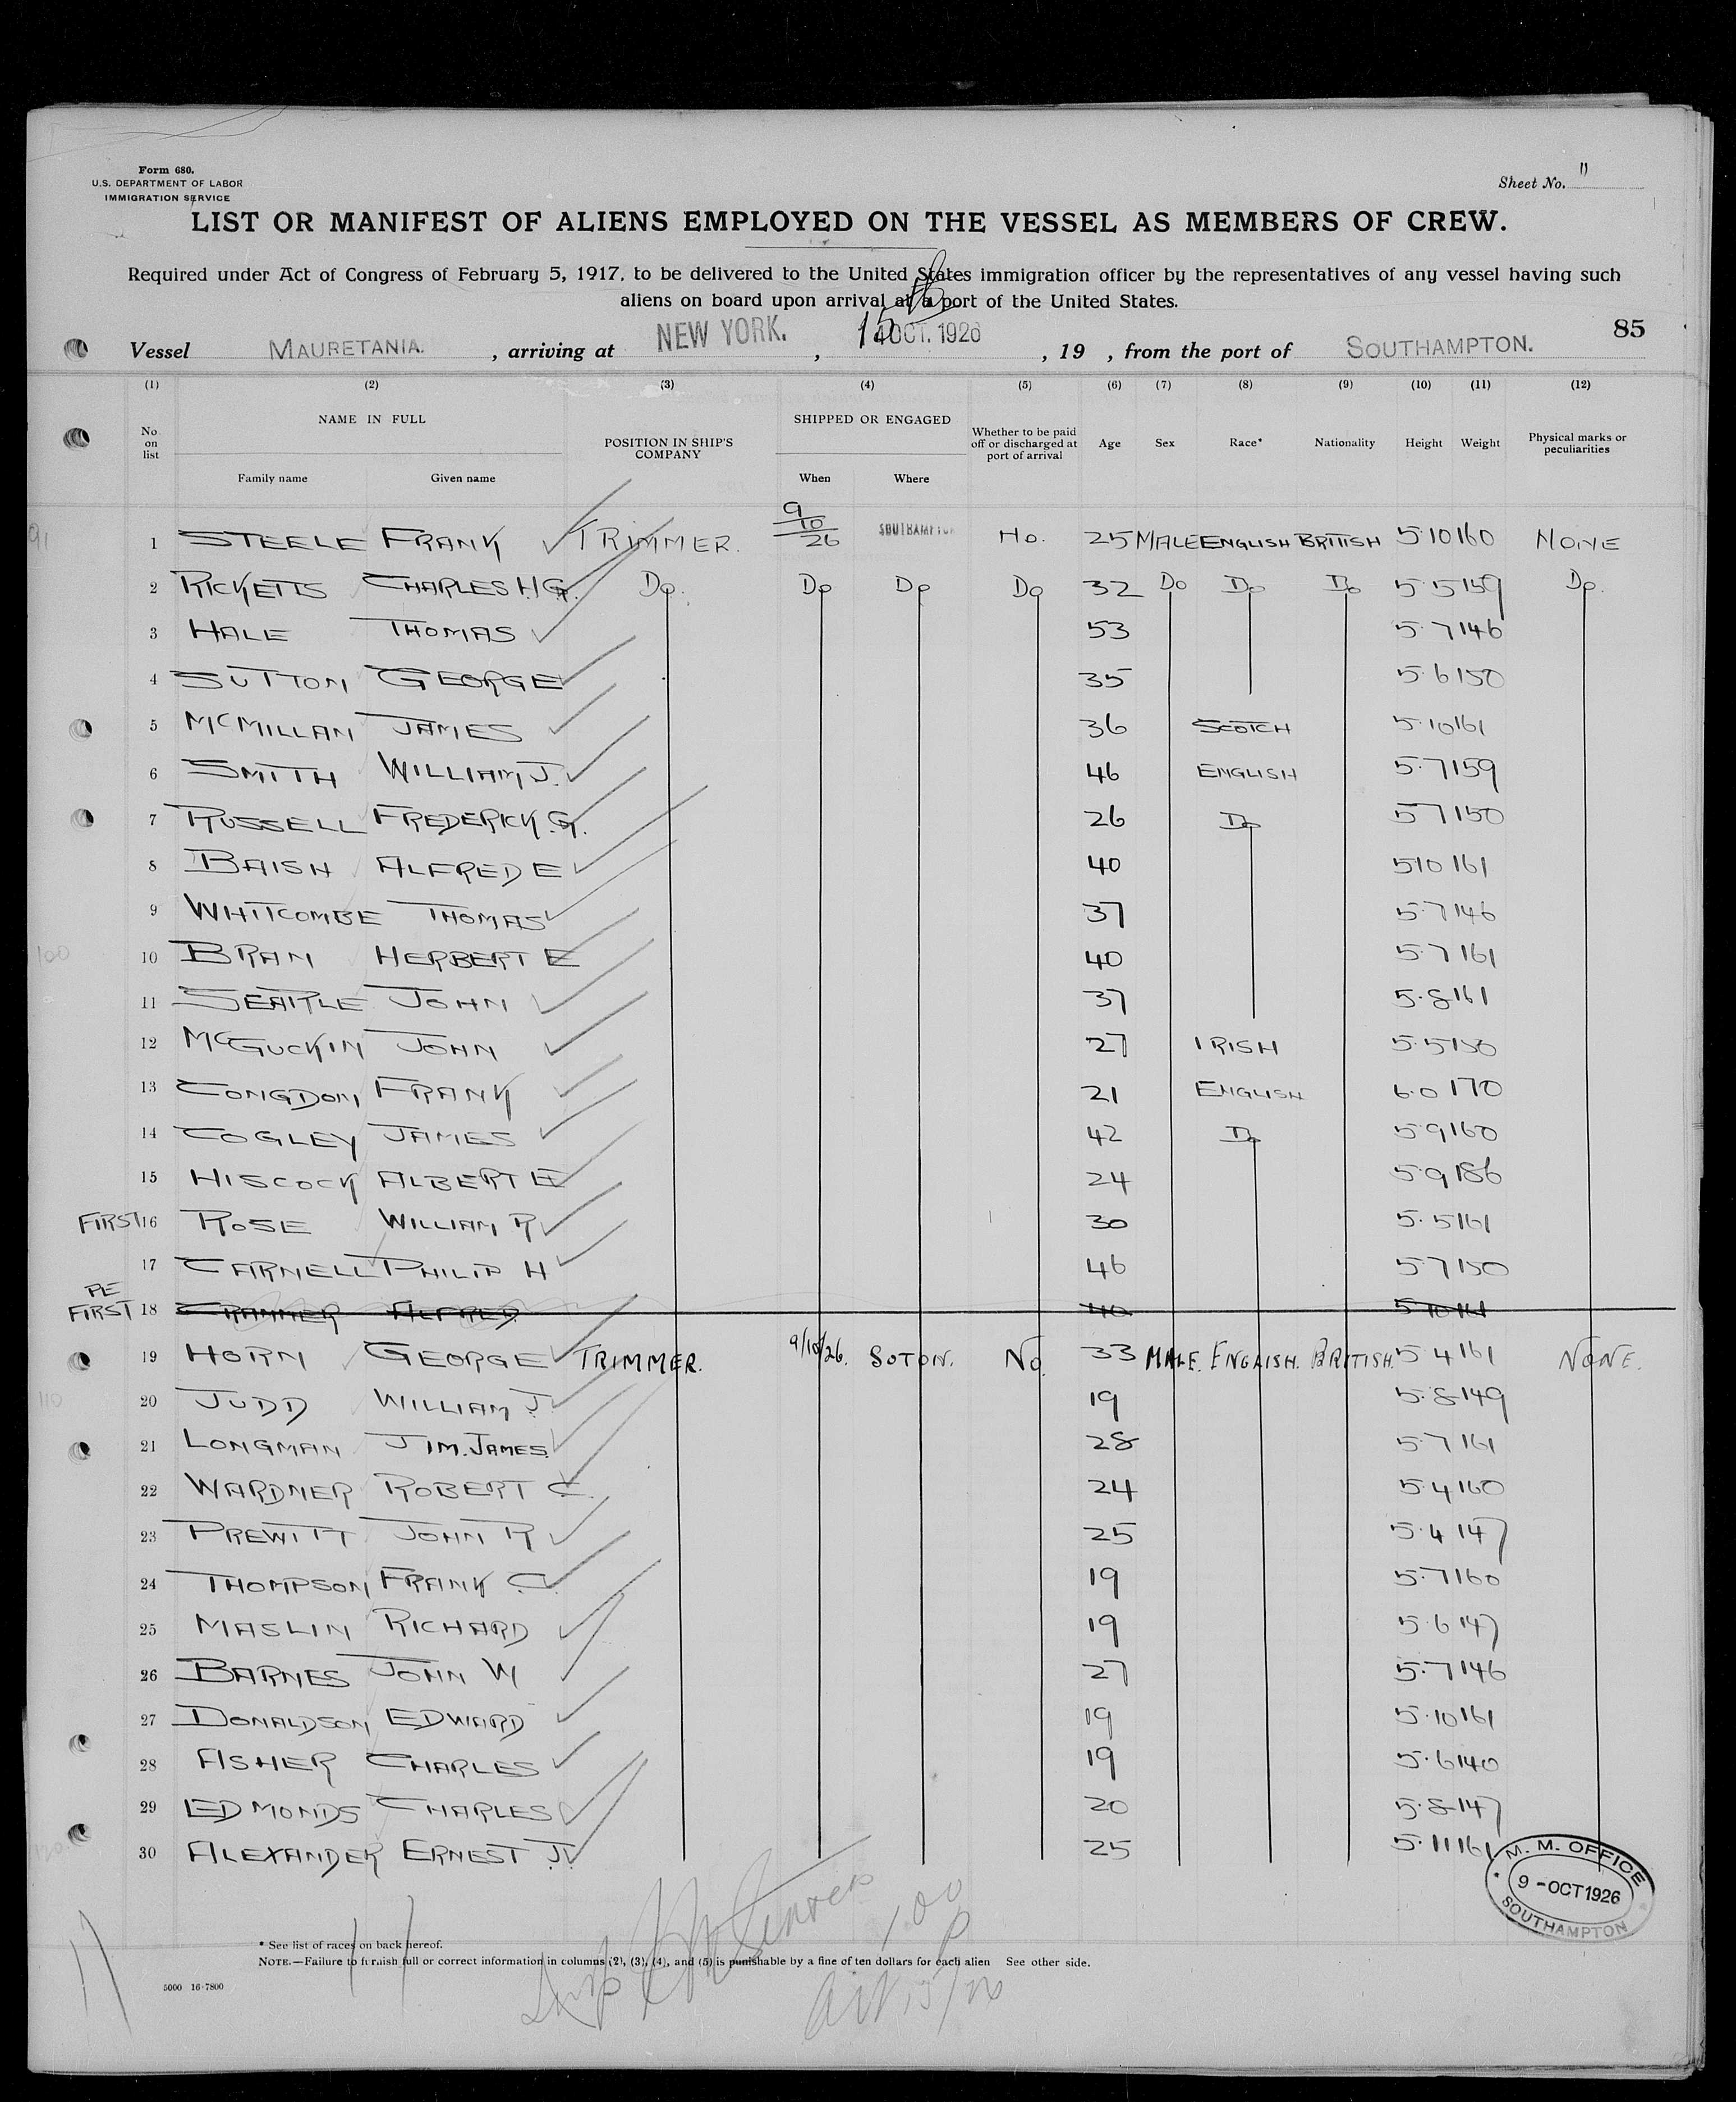 Form 680.
U.S. DEPARTMENT OF LABOR
IMMIGRATION SERVICE
Sheet No. 11
LIST OR MANIFEST OF ALIENS EMPLOYED ON THE VESSEL AS MEMBERS OF CREW.
Required under Act of Congress of February 5, 1917, to be delivered to the United States immigration officer by the representatives of any vessel having such
aliens on board upon arrival at a port of the United States.
85
Vessel MAURETANIA. , arriving at NEW YORK. , 15 OCT. 1926 , 19 , from the port of SOUTHAMPTON.
(1) (2) (3) (4) (5) (6) (7) (8) (9) (10) (11) (12)
No on list NAME IN FULL Family name Given name POSITION IN SHIP'S COMPANY SHIPPED OR ENGAGED When Where Whether to be paid off or discharged at port of arrival Age Sex Race* Nationality Height Weight Physical marks or peculiarities
91
1 STEELE FRANK TRIMMER. 9/10/26 SOUTHAMPTON No. 25 MALE ENGLISH BRITISH 5.10 160 NONE
2 RICKETTS CHARLES H.G. Do. Do Do Do 32 Do Do Do 5.5 159 Do.
3 HALE THOMAS 53 5.7 146
4 SUTTON GEORGE 35 5.6 150
5 McMILLAN JAMES 36 SCOTCH 5.10 161
6 SMITH WILLIAM J. 46 ENGLISH 5.7 159
7 RUSSELL FREDERICK.G. 26 Do 5 7 150
8 BAISH ALFRED E 40 5 10 161
9 WHITCOMBE THOMAS 37 5.7 146
100
10 BRAN HERBERT E 40 5.7 161
11 SEARLE JOHN 37 5.8 161
12 McGUCKIN JOHN 27 IRISH 5.5 150
13 CONGDON FRANK 21 ENGLISH 6.0 170
14 COGLEY JAMES 42 Do 5 9 160
15 HISCOCK ALBERT E 24 5.9 186
FIRST 16 ROSE WILLIAM R 30 5.5 161
17 CARNELL PHILIP H 46 5 7 150
PE
FIRST 18 CRAMMER ALFRED 40 5 10 161
19 HORN GEORGE TRIMMER. 9/10/26. SOTON. No. 33 MALE. ENGAISH. BRITISH. 5 4 161 NONE.
110
20 JUDD WILLIAM J. 19 5.8 149
21 LONGMAN JIM.JAMES. 28 5.7 161
22 WARDNER ROBERT C. 24 5.4 160
23 PREWITT JOHN R 25 5.4 147
24 THOMPSON FRANK C. 19 5.7 160
25 MASLIN RICHARD 19 5 6 147
26 BARNES JOHN W 27 5.7 146
27 DONALDSON EDWARD 19 5.10 161
28 ASHER CHARLES 19 5.6 140
29 EDMONDS CHARLES 20 5.8 147
120
30 ALEXANDER ERNEST J. 25 5.11 161
M. M. OFFICE
9 - OCT 1926
SOUTHAMPTON
* See list of races on back hereof.
NOTE.—Failure to furnish full or correct information in columns (2), (3), (4), and (5) is punishable by a fine of ten dollars for each alien See other side.
5000 16-7800